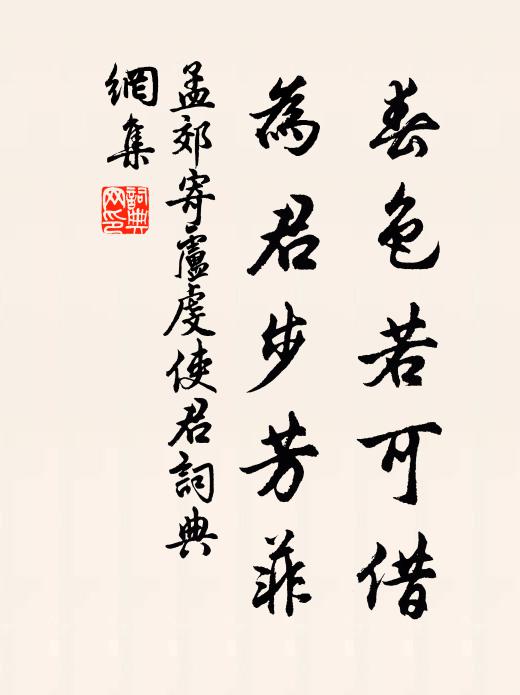 春色若可借
為君步芳菲
孟郊寄盧虔使君詞典
網集
詞典網印